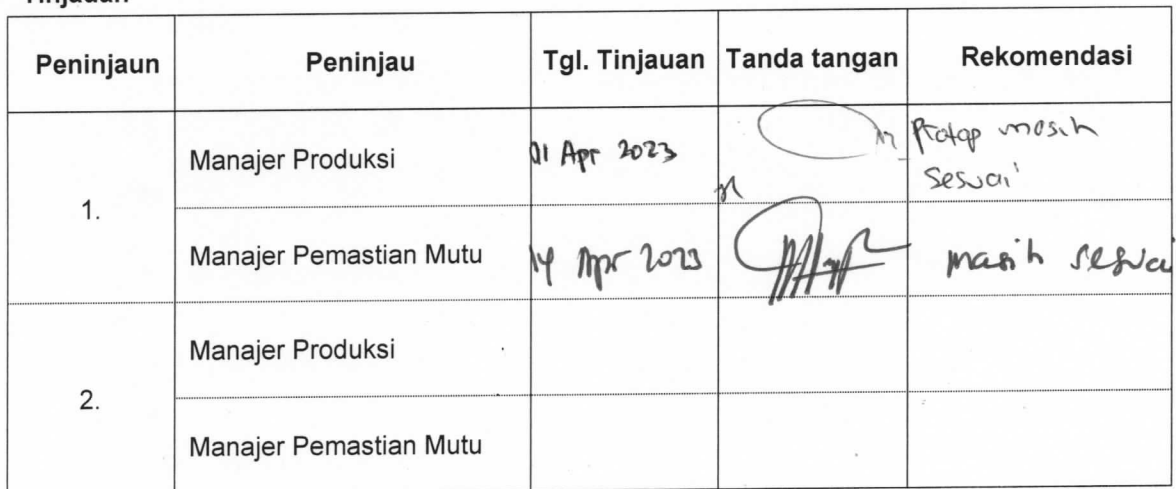 Tinjauan
Peninjaun Peninjau Tgl. Tinjauan Tanda tangan Rekomendasi
1.
Manajer Produksi 01 Apr 2023 Protap masih
sesuai
Manajer Pemastian Mutu 14 Apr 2023 masih sesuai
2.
Manajer Produksi
Manajer Pemastian Mutu